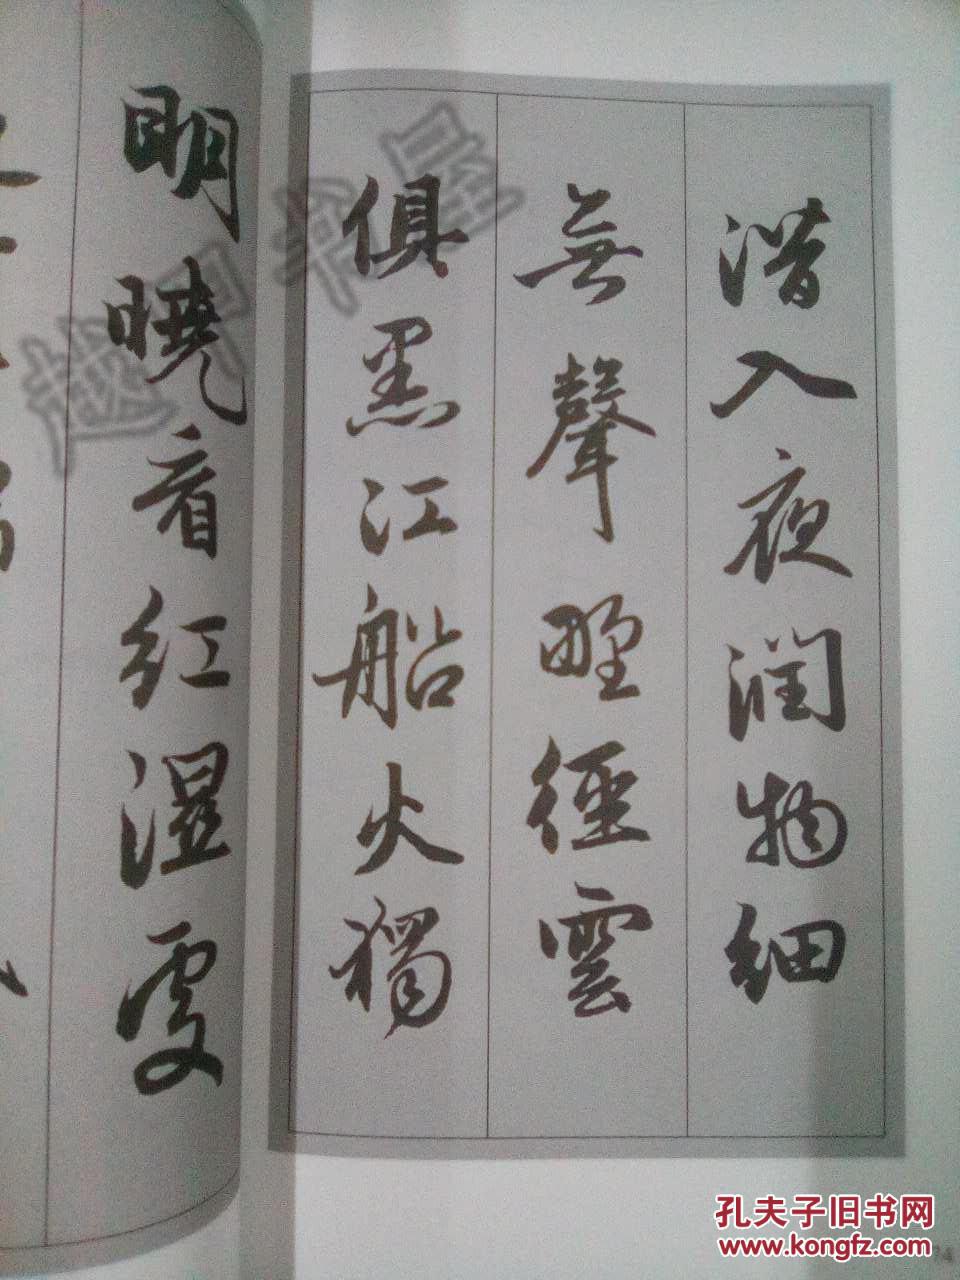 潜入夜潤物細
無聲野徑雲
俱黑江船火獨
明曉看紅濕處
孔夫子旧书网
www.kongfz.com